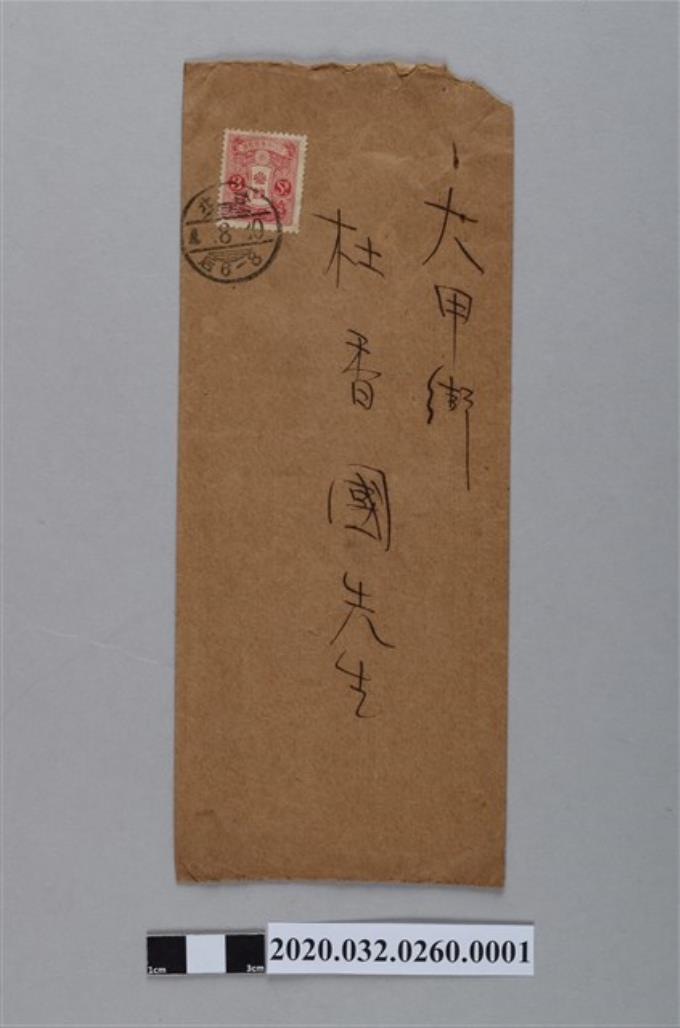 大甲街
杜香國先生
8 10
后6-8
1cm
3cm
2020.032.0260.0001